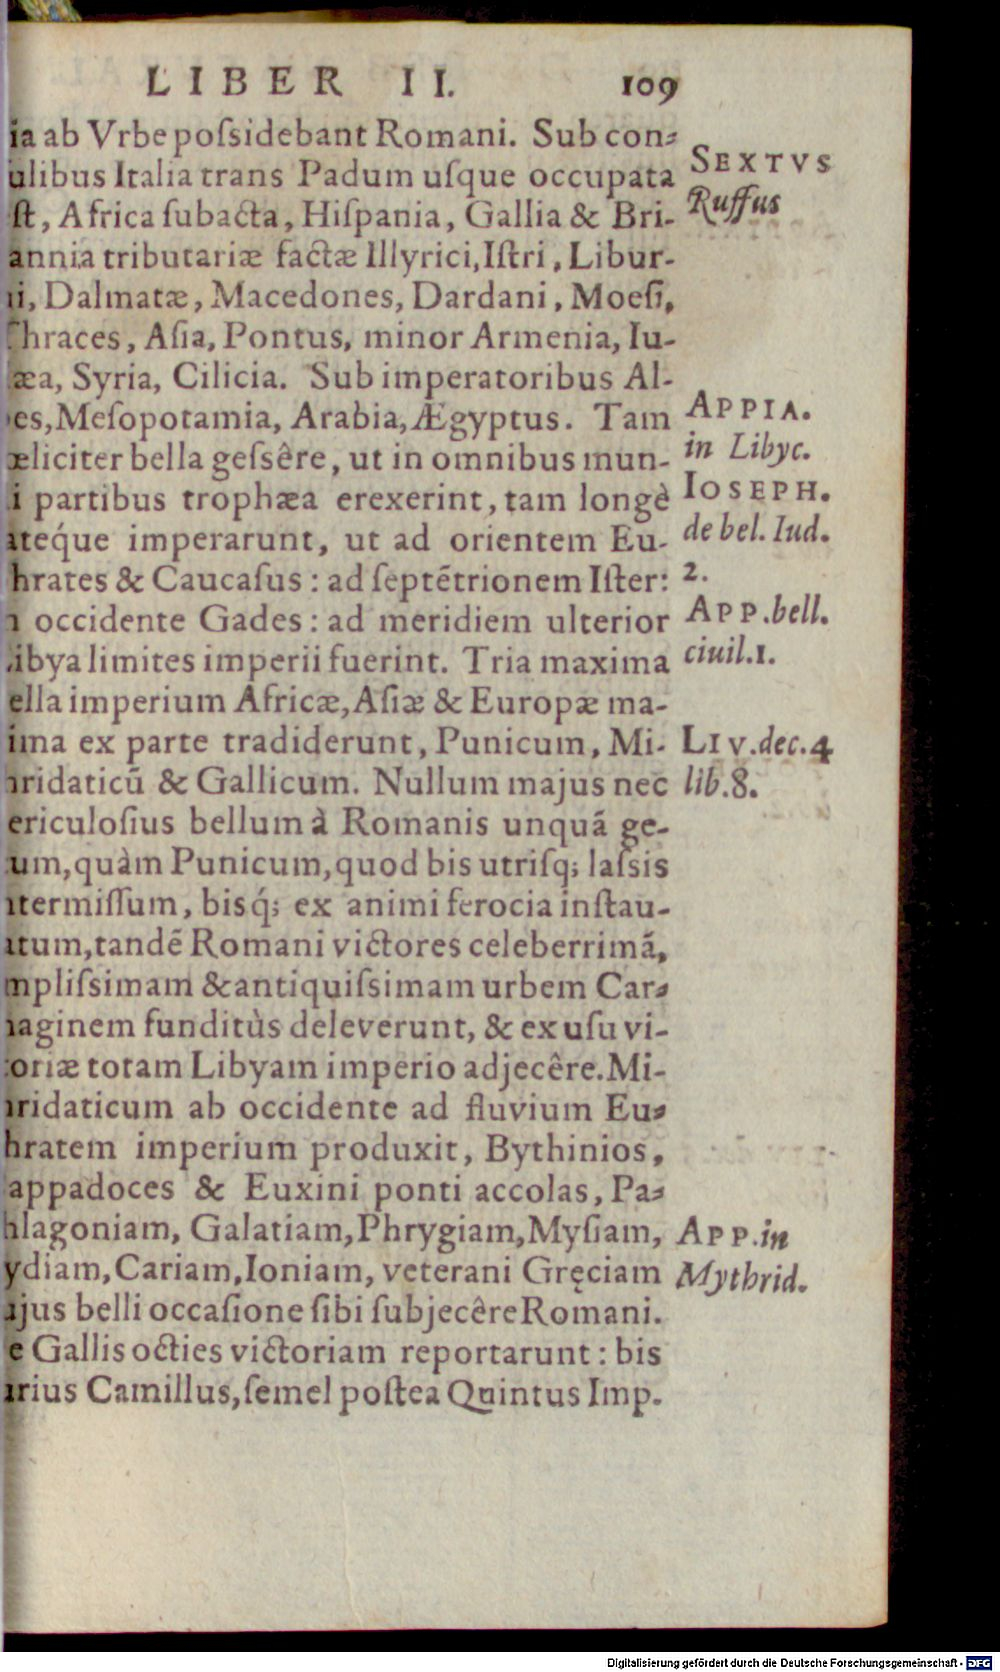 LIBER II. 109
ia ab Vrbe poſsidebant Romani. Sub con-
ulibus Italia trans Padum uſque occupata
ſt, Africa ſubacta, Hiſpania, Gallia & Bri-
annia tributariæ factæ Illyrici, Iſtri, Libur-
i, Dalmatæ, Macedones, Dardani, Moeſi,
hraces, Aſia, Pontus, minor Armenia, Iu-
æa, Syria, Cilicia. Sub imperatoribus Al-
es, Meſopotamia, Arabia, Ægyptus. Tam
æliciter bella geſsêre, ut in omnibus mun-
i partibus trophæa erexerint, tam longè
atéque imperarunt, ut ad orientem Eu-
hrates & Caucaſus: ad ſeptẽtrionem Iſter:
occidente Gades: ad meridiem ulterior
ibya limites imperii fuerint. Tria maxima
ella imperium Africæ, Aſiæ & Europæ ma-
ima ex parte tradiderunt, Punicum, Mi-
hridaticũ & Gallicum. Nullum majus nec
ericuloſius bellum à Romanis unquã ge-
um, quàm Punicum, quod bis utriſq; laſsis
ntermiſſum, bisq́; ex animi ferocia inſtau-
atum, tandẽ Romani victores celeberrimã,
mpliſsimam & antiquiſsimam urbem Car-
haginem funditùs deleverunt, & ex uſu vi-
oriæ totam Libyam imperio adjecêre. Mi-
hridaticum ab occidente ad fluvium Eu-
hratem imperium produxit, Bythinios,
appadoces & Euxini ponti accolas, Pa-
hlagoniam, Galatiam, Phrygiam, Myſiam,
ydiam, Cariam, Ioniam, veterani Gręciam
ujus belli occaſione ſibi ſubjecêre Romani.
e Gallis octies victoriam reportarunt: bis
arius Camillus, ſemel poſtea Quintus Imp.
SEXTVS
Ruffus
APPIA.
in Libyc.
IOSEPH.
de bel. Iud.
2.
APP. bell.
ciuil. 1.
LIV. dec. 4
lib. 8.
APP. in
Mythrid.
Digitalisierung gefördert durch die Deutsche Forschungsgemeinschaft - DFG